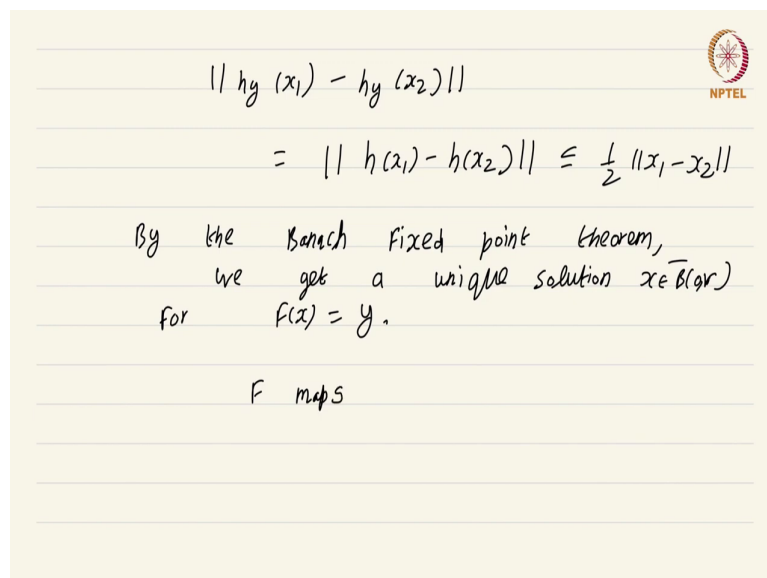 || hy (x₁) - hy (x₂) ||
NPTEL
= || h(x₁) - h(x₂) || ≤ 1/2 ||x₁ - x₂||
By the Banach Fixed point theorem,
we get a unique solution x ∈ B̅(0,r)
for F(x) = y.
F maps